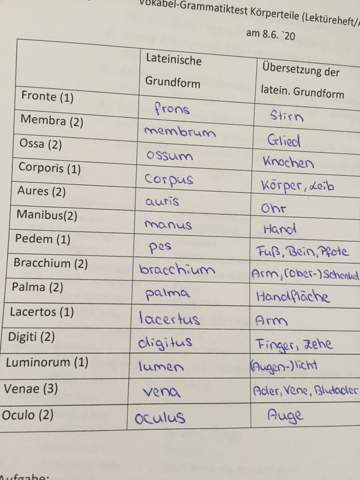 Vokabel-Grammatiktest Körperteile (Lektüreheft/
am 8.6. `20
Lateinische Grundform Übersetzung der latein. Grundform
Fronte (1) frons Stirn
Membra (2) membrum Glied
Ossa (2) ossum Knochen
Corporis (1) corpus Körper, Leib
Aures (2) auris Ohr
Manibus(2) manus Hand
Pedem (1) pes Fuß, Bein, Pfote
Bracchium (2) bracchium Arm, (Ober-) Schenkel
Palma (2) palma Handfläche
Lacertos (1) lacertus Arm
Digiti (2) digitus Finger, Zehe
Luminorum (1) lumen (Augen-)licht
Venae (3) vena Ader, Vene, Blutader
Oculo (2) oculus Auge
Aufgabe: